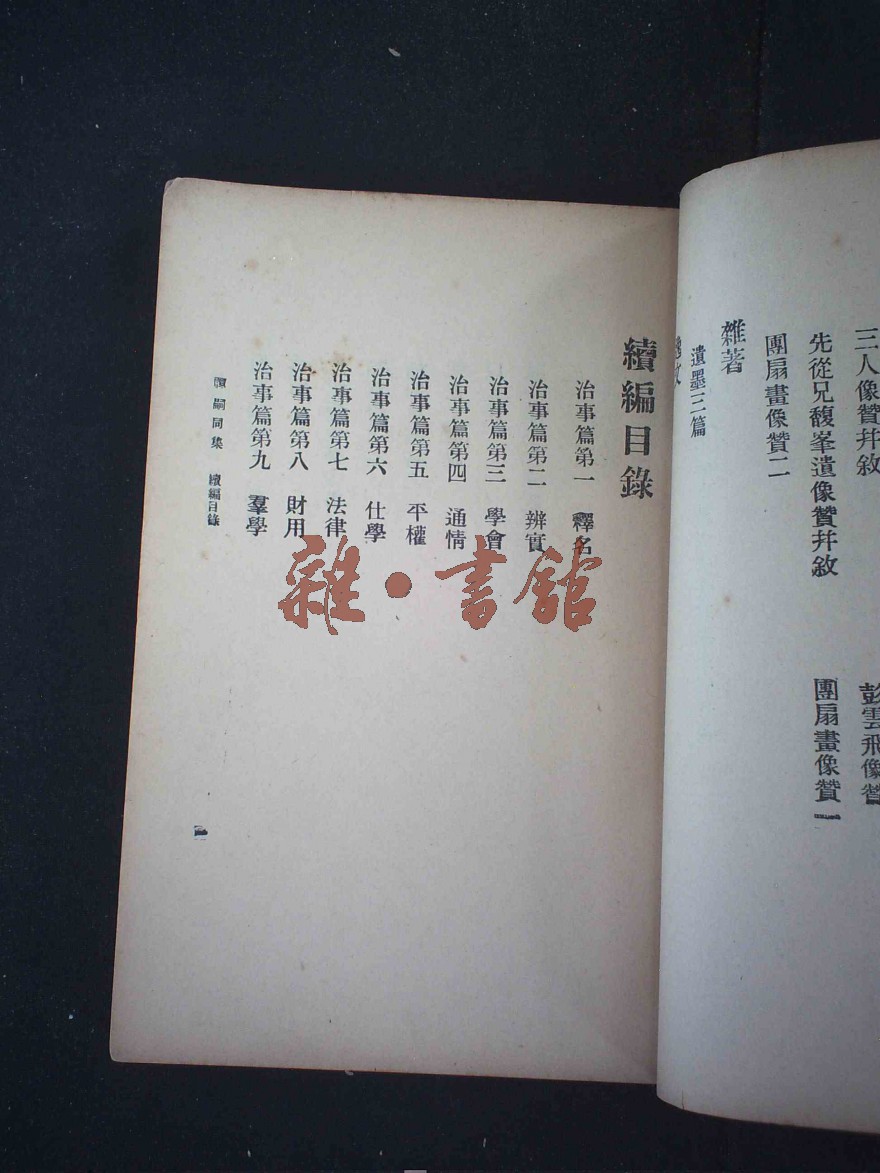 三人像贊幷敘
彭雲飛像贊
先從兄馥峯遺像贊幷敘
團扇畫像贊一
團扇畫像贊二
雜著
遺墨三篇
續編目錄
治事篇第一 釋名
治事篇第二 辨實
治事篇第三 學會
治事篇第四 通情
治事篇第五 平權
治事篇第六 仕學
治事篇第七 法律
治事篇第八 財用
治事篇第九 羣學
譚嗣同集 續編目錄
雜·書館